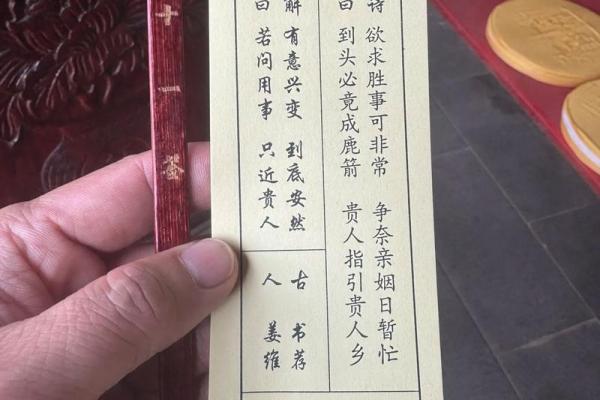 诗 欲求胜事可非常 争奈亲姻日暂忙
曰 到头必竟成鹿箭 贵人指引贵人乡
解 有意兴变 到底安然
曰 若问用事 只近贵人
古 书荐
人 姜维
十一